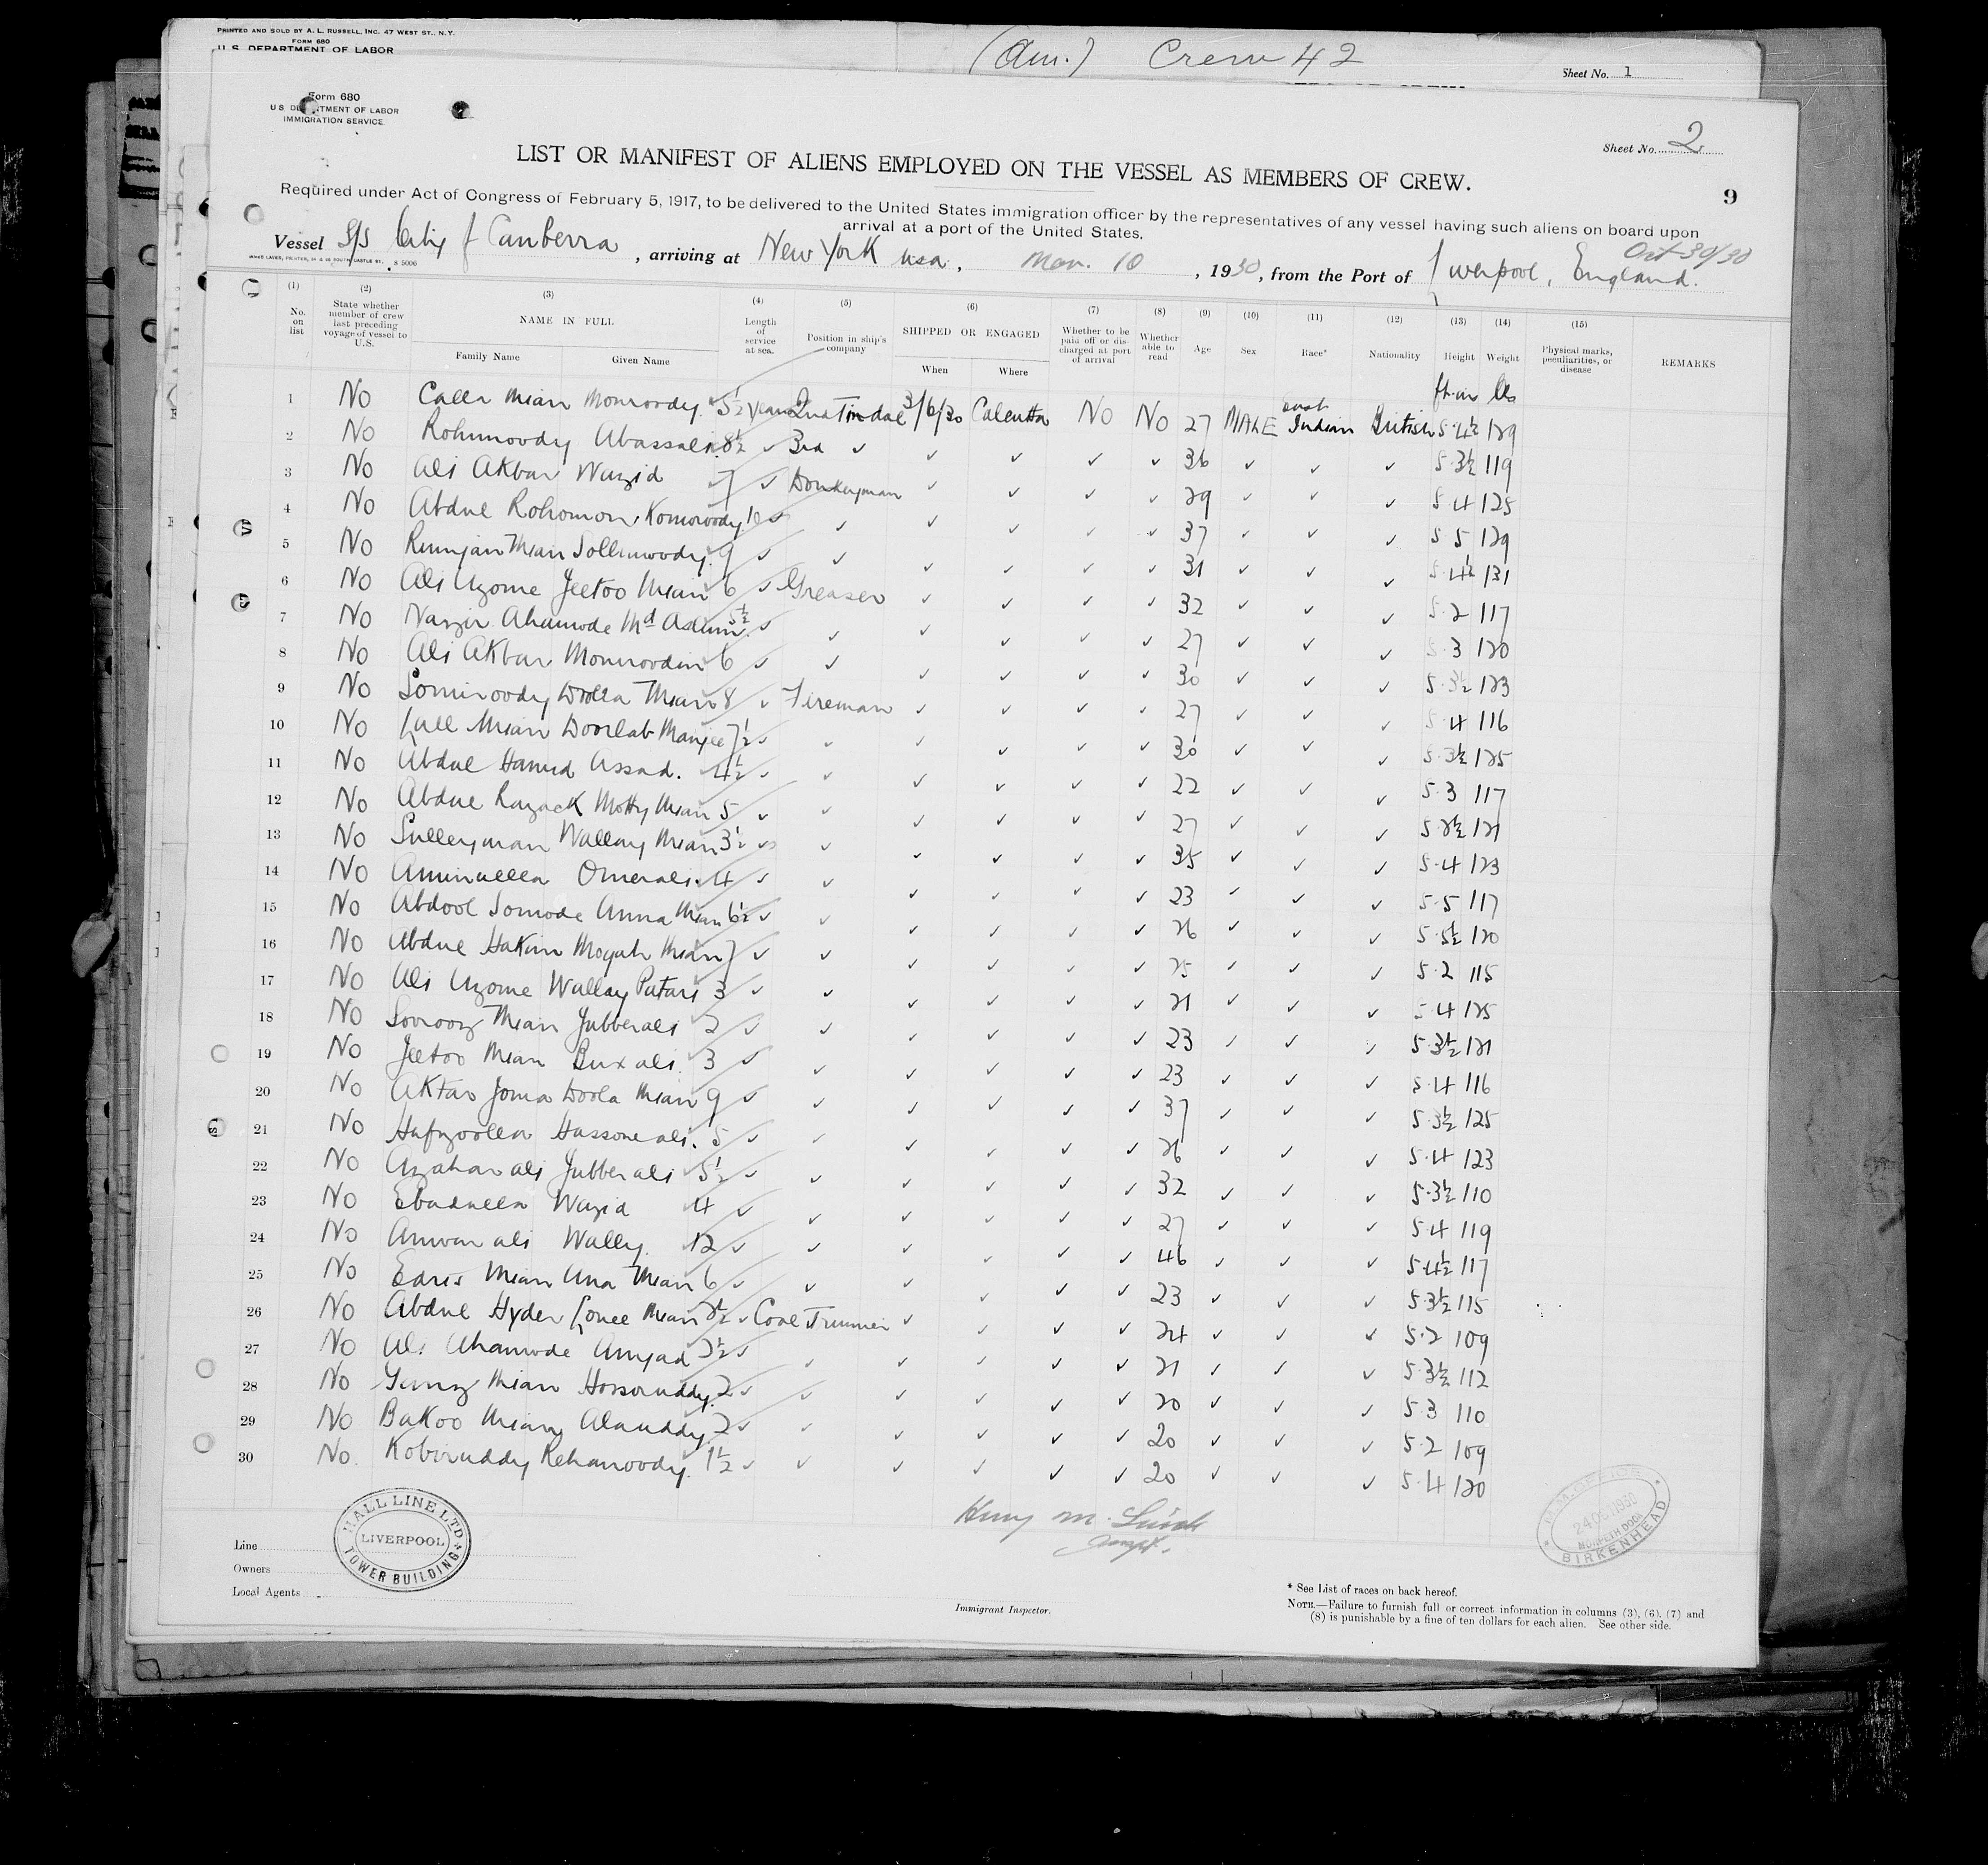 PRINTED AND SOLD BY A. L. RUSSELL, INC. 47 WEST ST., N.Y.
FORM 680
U. S. DEPARTMENT OF LABOR
(Am.) Crew 42
Sheet No. 1
Form 680
U S DEPARTMENT OF LABOR
IMMIGRATION SERVICE.
Sheet No. 2
LIST OR MANIFEST OF ALIENS EMPLOYED ON THE VESSEL AS MEMBERS OF CREW.
9
Required under Act of Congress of February 5, 1917, to be delivered to the United States immigration officer by the representatives of any vessel having such aliens on board upon
arrival at a port of the United States.
Oct 30/30
Vessel S/S City of Canberra, arriving at New York usa, Nov. 10, 1930, from the Port of Liverpool, England.
(1) No. on list
(2) State whether member of crew last preceding voyage of vessel to U.S.
(3) NAME IN FULL Family Name Given Name
(4) Length of service at sea.
(5) Position in ship's company
(6) SHIPPED OR ENGAGED When Where
(7) Whether to be paid off or discharged at port of arrival
(8) Whether able to read
(9) Age
(10) Sex
(11) Race*
(12) Nationality
(13) Height
(14) Weight
(15) Physical marks, peculiarities, or disease
REMARKS
ft-in lbs
1 No Caler Mian Monroody 5½ years 2nd Tindal 3/6/30 Calcutta No No 27 MALE East Indian British 5·4½ 129
2 No Rohimoody Abassali 8½ ✓ 3rd ✓ ✓ ✓ ✓ ✓ 36 ✓ ✓ ✓ 5·3½ 119
3 No Ali Akbar Wazid 7 ✓ Donkeyman ✓ ✓ ✓ ✓ 29 ✓ ✓ ✓ 5·4 125
4 No Abdul Rohomon Komoroody 10 ✓ ✓ ✓ ✓ ✓ ✓ 37 ✓ ✓ ✓ 5 5 129
5 No Rumjan Mian Sollimoody 9 ✓ ✓ ✓ ✓ ✓ ✓ 31 ✓ ✓ ✓ 5·4½ 131
6 No Ali Uzome Jeetoo Mian 6 ✓ Greaser ✓ ✓ ✓ ✓ 32 ✓ ✓ ✓ 5·2 117
7 No Nazir Ahamode Md Aslim 5½ ✓ ✓ ✓ ✓ ✓ ✓ 27 ✓ ✓ ✓ 5·3 120
8 No Ali Akbar Monroodin 6 ✓ ✓ ✓ ✓ ✓ ✓ 30 ✓ ✓ ✓ 5·3½ 123
9 No Somiroody Doola Mian 8 ✓ Fireman ✓ ✓ ✓ ✓ 27 ✓ ✓ ✓ 5·4 116
10 No Lall Mian Doorlab Manjee 7½ ✓ ✓ ✓ ✓ ✓ ✓ 30 ✓ ✓ ✓ 5·3½ 125
11 No Abdul Hamid Assad. 4½ ✓ ✓ ✓ ✓ ✓ ✓ 22 ✓ ✓ ✓ 5·3 117
12 No Abdul Razack Motty Mian 5 ✓ ✓ ✓ ✓ ✓ ✓ 27 ✓ ✓ ✓ 5·2½ 121
13 No Sulleyman Wallay Mian 3½ ✓ ✓ ✓ ✓ ✓ ✓ 35 ✓ ✓ ✓ 5·4 123
14 No Aminulla Omerali 4 ✓ ✓ ✓ ✓ ✓ ✓ 23 ✓ ✓ ✓ 5·5 117
15 No Abdool Somode Anna Mian 6½ ✓ ✓ ✓ ✓ ✓ ✓ 26 ✓ ✓ ✓ 5·5½ 120
16 No Abdul Hakim Mogah Mian 7 ✓ ✓ ✓ ✓ ✓ ✓ 25 ✓ ✓ ✓ 5·2 115
17 No Ali Uzome Wallay Patari 3 ✓ ✓ ✓ ✓ ✓ ✓ 21 ✓ ✓ ✓ 5·4 125
18 No Sorooz Mian Jubberali 2 ✓ ✓ ✓ ✓ ✓ ✓ 23 ✓ ✓ ✓ 5·3½ 121
19 No Jeetoo Mian Buxali 3 ✓ ✓ ✓ ✓ ✓ ✓ 23 ✓ ✓ ✓ 5·4 116
20 No Aktar Joma Doola Mian 9 ✓ ✓ ✓ ✓ ✓ ✓ 37 ✓ ✓ ✓ 5·3½ 125
21 No Hafizoolla Hassoneali. 5 ✓ ✓ ✓ ✓ ✓ ✓ 26 ✓ ✓ ✓ 5·4 123
22 No Azaharali Jubberali 5½ ✓ ✓ ✓ ✓ ✓ ✓ 32 ✓ ✓ ✓ 5·3½ 110
23 No Ebadulla Wazid 4 ✓ ✓ ✓ ✓ ✓ ✓ 27 ✓ ✓ ✓ 5·4 119
24 No Anwarali Wally. 12 ✓ ✓ ✓ ✓ ✓ ✓ 46 ✓ ✓ ✓ 5·4½ 117
25 No Edris Mian Una Mian 6 ✓ ✓ ✓ ✓ ✓ ✓ 23 ✓ ✓ ✓ 5·3½ 115
26 No Abdul Hyder Lonee Mian 2½ ✓ Coal Trimmer ✓ ✓ ✓ ✓ 24 ✓ ✓ ✓ 5·2 109
27 No Ali Ahamode Amjad 2½ ✓ ✓ ✓ ✓ ✓ ✓ 21 ✓ ✓ ✓ 5·3½ 112
28 No Mian 2 ✓ ✓ ✓ ✓ ✓ ✓ 20 ✓ ✓ ✓ 5·3 110
29 No Bakoo Mian Alauddy 2 ✓ ✓ ✓ ✓ ✓ ✓ 20 ✓ ✓ ✓ 5·2 109
30 No. Kobiruddy Rehanoody. 1½ ✓ ✓ ✓ ✓ ✓ ✓ 20 ✓ ✓ ✓ 5·4 120
HALL LINE LTD
LIVERPOOL
TOWER BUILDING
Henry M.
24 OC 1930
MORPETH DOCK
BIRKENHEAD
Line
Owners
Local Agents
Immigrant Inspector.
* See List of races on back hereof.
NOTE.—Failure to furnish full or correct information in columns (3), (6), (7) and
(8) is punishable by a fine of ten dollars for each alien. See other side.